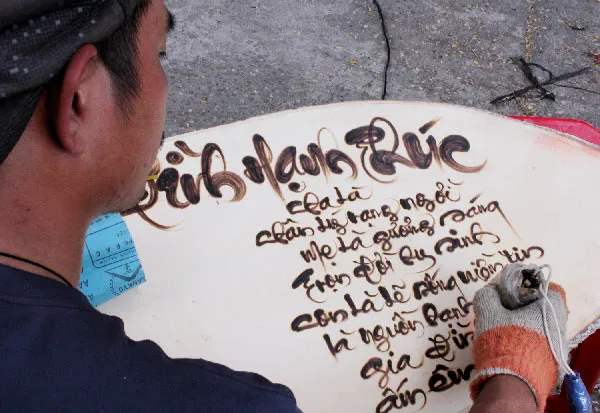 Đình Hạnh Phúc
Cha là
chân lý rạng ngời
Mẹ là gương sáng
Trọn đời hy sinh
Con là lẽ sống niềm tin
là nguồn hạnh
gia đình
ấm êm